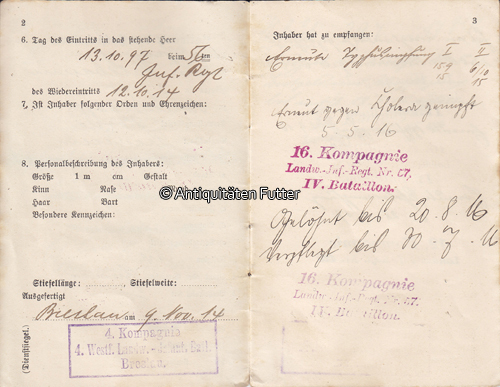 2
6. Tag des Eintritts in das stehende Heer
13.10.97 beim 56ten
Inf. Regt
des Wiedereintritts 12.10.14
7. Ist Inhaber folgender Orden und Ehrenzeichen:
8. Personalbeschreibung des Inhabers:
Größe 1 m cm Gestalt
Kinn Nase
Haar Bart
Besondere Kennzeichen:
© Antiquitäten Futter
Stiefellänge: Stiefelweite:
Ausgefertigt
Breslau am 9. Nov. 14
(Dienstsiegel.)
4. Kompagnie
4. Westf. Landw.- Batl.
Breslau.
3
Inhaber hat zu empfangen:
Erneute Typhusimpfung I II
15 9 15
6/10 15
Erneut gegen Cholera geimpft
5.5.16
16. Kompagnie
Landw.-Inf.-Regt. Nr. 67.
IV. Bataillon.
Gelöhnt bis 20.8.16
Verpflegt bis
16. Kompagnie
Landw.-Inf.-Regt. Nr. 67.
IV. Bataillon.